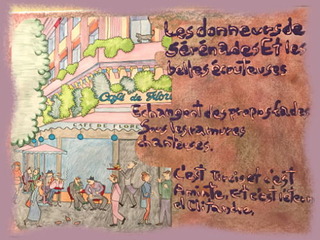 Café de Flore
Les donneurs de
sérénades Et les
belles écouteuses
Echangent des propos fades
Sous les ramures
chanteuses.
C'est Tircis et c'est
Aminte, et c'est l'éter